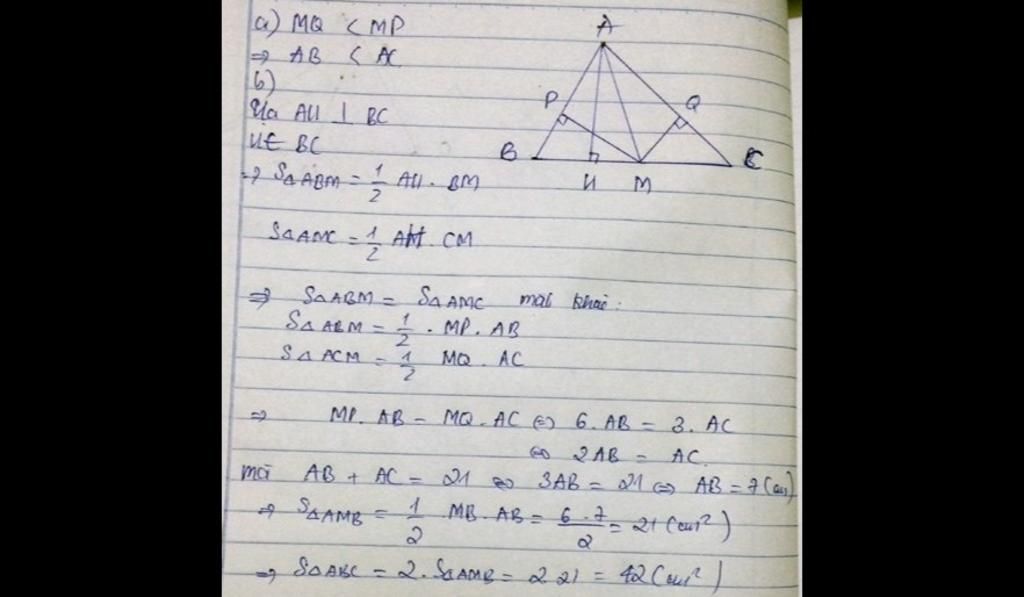 a) MQ < MP
⇒ AB < AC
b)
Hạ AH ⊥ BC
H ∈ BC
⇒ SΔABM = 1/2 AH . BM
SΔAMC = 1/2 AH . CM
⇒ SΔABM = SΔAMC mặt khác :
SΔABM = 1/2 . MP . AB
SΔACM = 1/2 MQ . AC
⇒ MP . AB = MQ . AC ⇔ 6 . AB = 3 . AC
⇔ 2AB = AC.
mà AB + AC = 21 ⇔ 3AB = 21 ⇔ AB = 7 (cm)
⇒ SΔAMB = 1/2 MB . AB = 6 . 7/2 = 21 (cm²)
⇒ SΔABC = 2 . SΔAMB = 2 . 21 = 42 (cm²)
A
P
Q
B
C
H
M